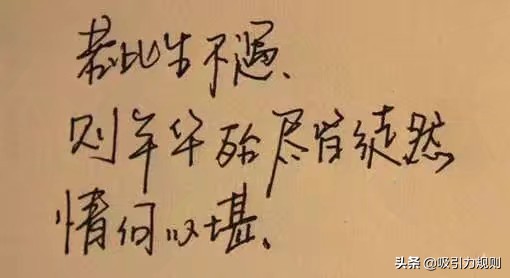 若此生不遇、
则年华殆尽皆徒然
情何以堪、
头条 @吸引力规则